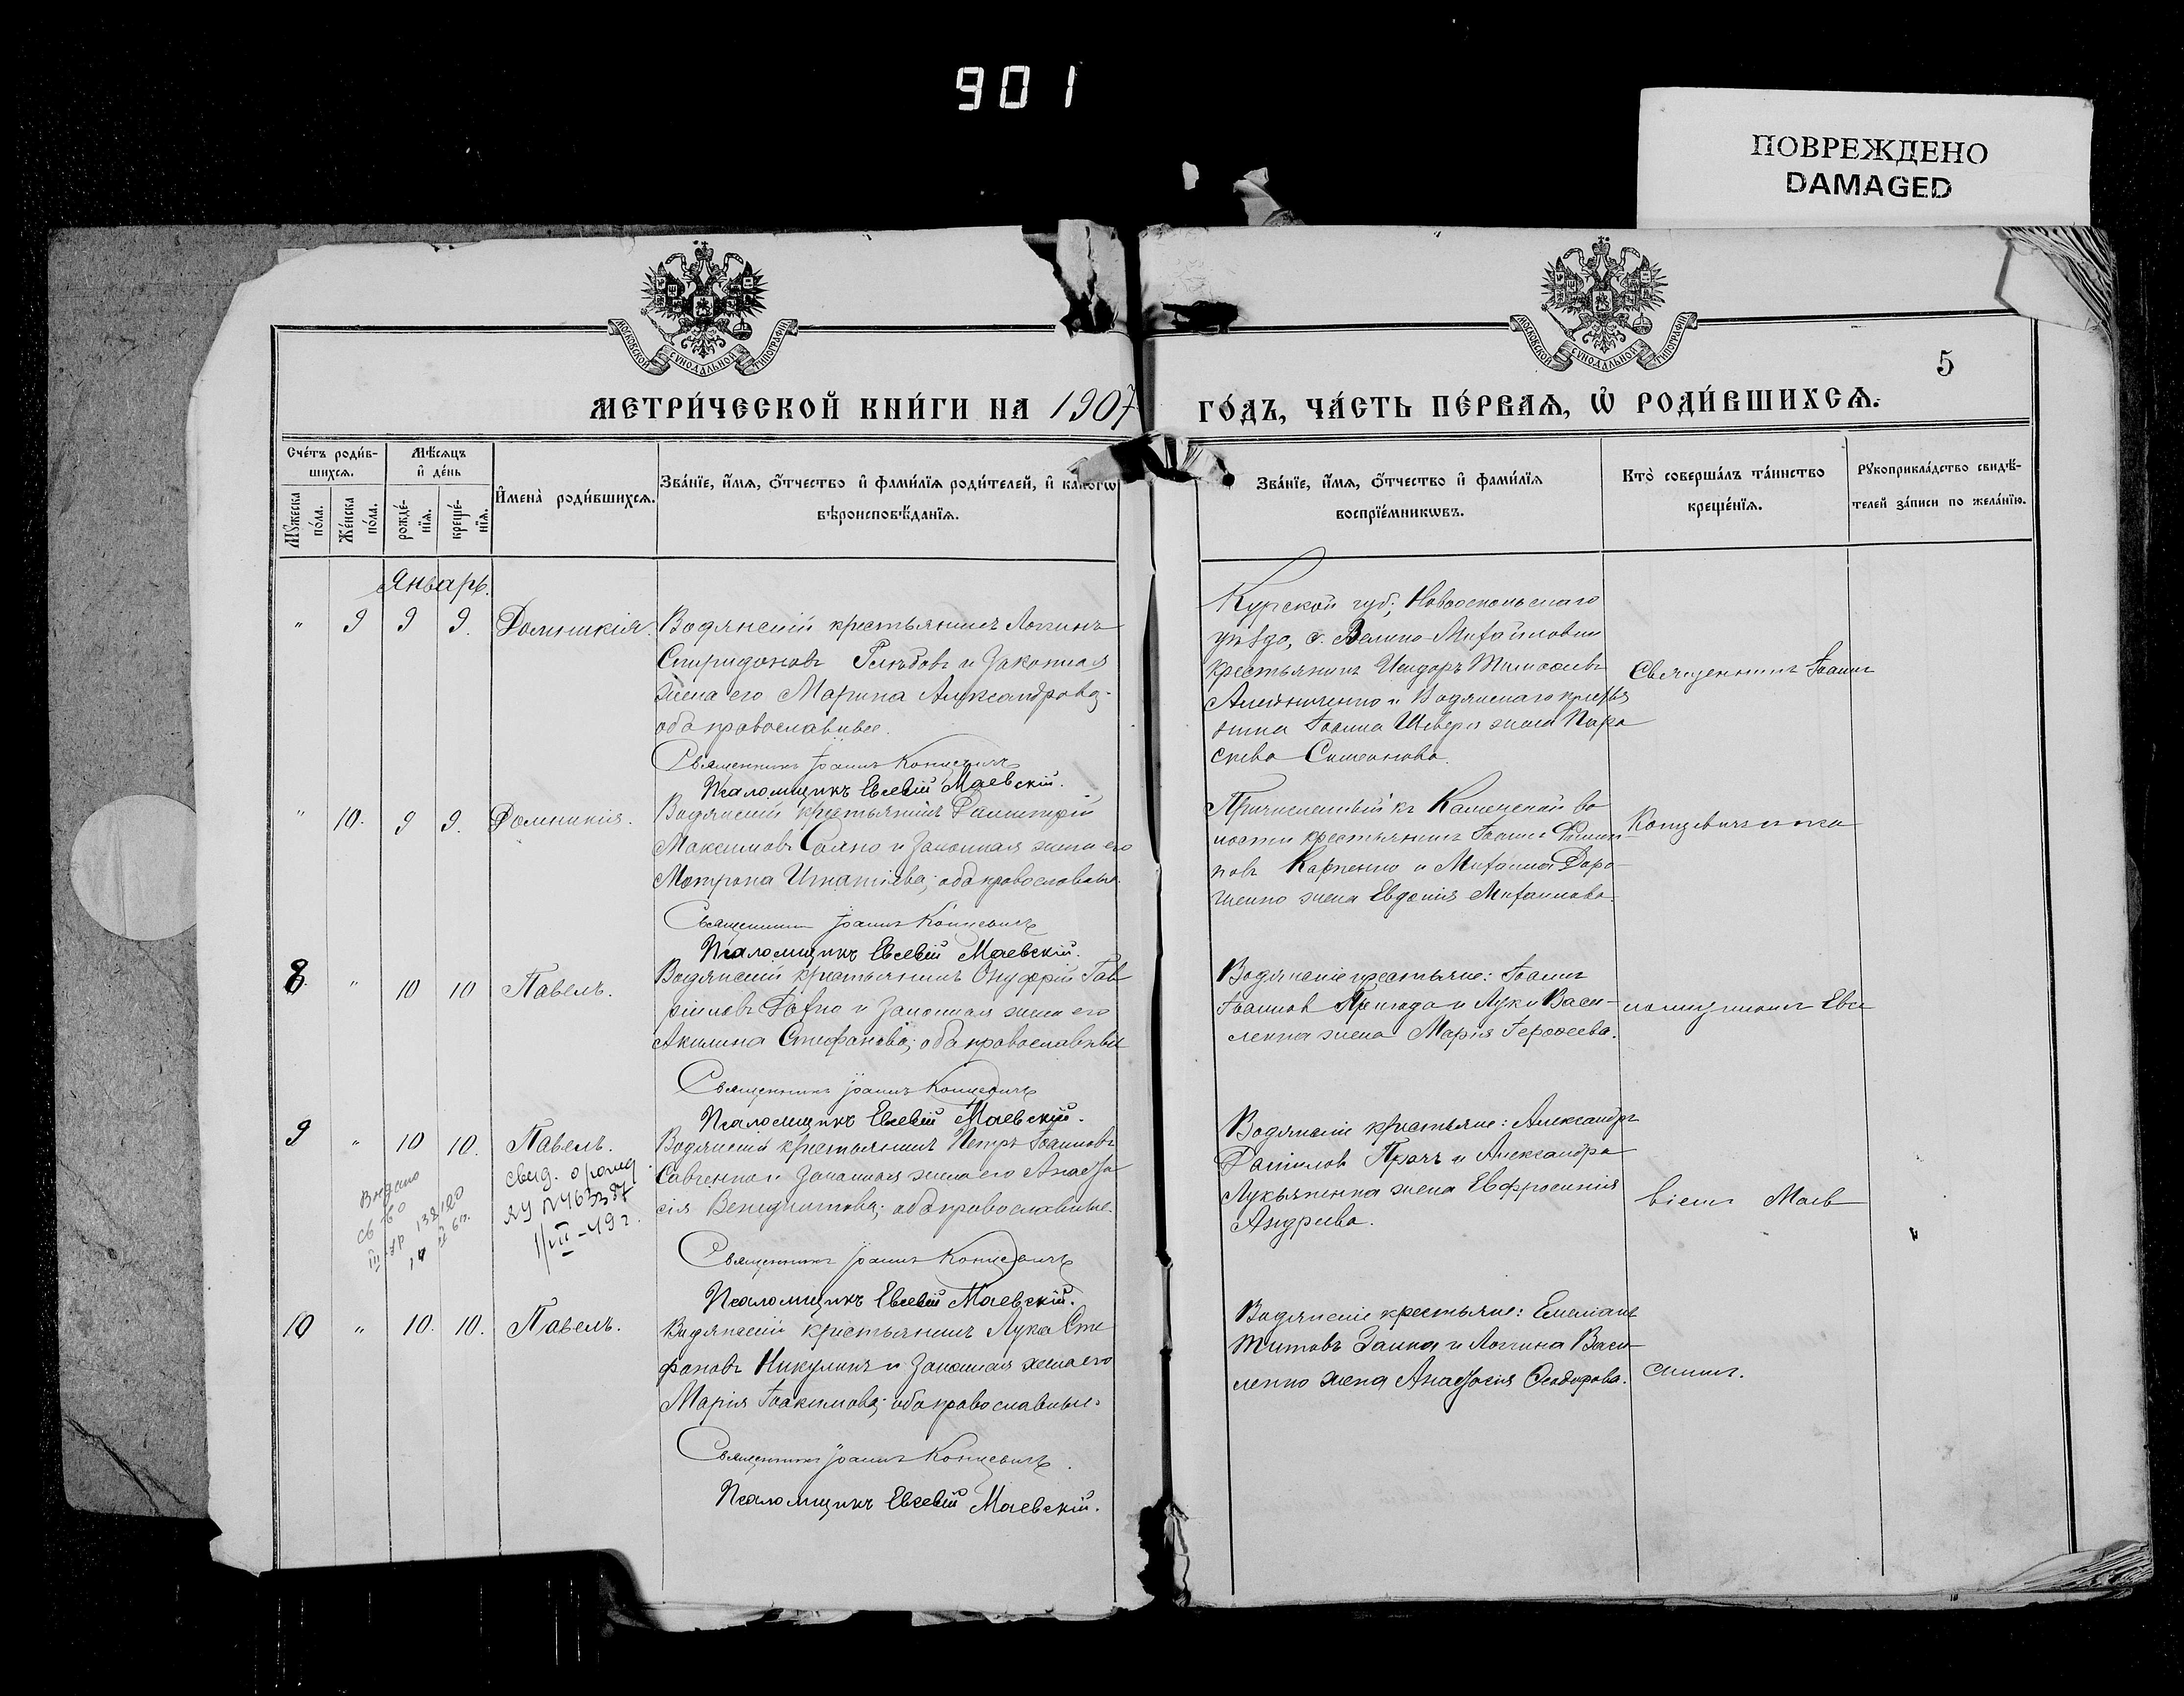 901
ПОВРЕЖДЕНО
DAMAGED
МОСКОВСКОЙ СѴНОДАЛЬНОЙ ТИПОГРАФІИ
МОСКОВСКОЙ СѴНОДАЛЬНОЙ ТИПОГРАФІИ
5
МЕТРИ́ЧЕСКОЙ КНИ́ГИ НА 1907
ГО́ДЪ, ЧА́СТЬ ПЕ́РВАѦ, Ѡ РОДИ́ВШИХСѦ.
Сче́тъ роди́в-
шихсѧ.
Мꙋжеска
по́ла.
Же́нска
по́ла.
Мѣ́сѧцъ
и҆ де́нь
рожде́-
нїѧ.
креще́-
нїѧ.
И҆мена̀ роди́вшихсѧ.
Зва́нїе, и҆́мѧ, ѻ҆́тчество и҆ фами́лїѧ роди́телей, и҆ како́гѡ
вѣроисповѣ́данїѧ.
Зва́нїе, и҆́мѧ, ѻ҆́тчество и҆ фами́лїѧ
воспрїе́мникѡвъ.
Кто̀ соверша́лъ та́инство
креще́нїѧ.
Рꙋкоприкла́дство свидѣ́-
телей за́писи по жела́нїю.
Январь.
" 9 9 9. Домникія.
Водянскій крестьянинъ Логинъ
Спиридоновъ и законная
жена его Марина Александрова
оба православные.
Священникъ Іоаннъ Концевичъ
Псаломщикъ Евсевій Маевскій.
Курской губ; Новооскольскаго
уѣзда, с. Велико-Михайловки
крестьянинъ Исидоръ Тимофеевъ
и Водянскаго кресть
янина Іоанна жена Пара
скева Симеонова.
Священникъ Іоаннъ
" 10. 9 9. Домникія.
Водянскій крестьянинъ Димитрій
Максимовъ и законная жена его
Матрона Игнатіева; оба православные.
Священникъ Іоаннъ Концевичъ
Псаломщикъ Евсевій Маевскій.
Причисленный къ Каменской во
лости крестьянинъ Іоаннъ Филип
повъ Карпенко и Михаила Доро
шенко жена Евдокія Михаилова.
Концевичъ и пса
8. " 10 10 Павелъ.
Водянскій крестьянинъ Онуфрій Гав
ріиловъ Дахно и законная жена его
Акилина Стефанова; оба православные
Священникъ Іоаннъ Концевичъ
Псаломщикъ Евсевій Маевскій.
Водянскіе крестьяне: Іоаннъ
Іоанновъ и Луки Васи-
ленка жена Марія Герасеева.
ломщикомъ Евсе
9 " 10 10. Павелъ.
Водянскій крестьянинъ Петръ Іоанновъ
Савченко и законная жена его Анаста
сія Венедиктова; оба православные.
Священникъ Іоаннъ Концевичъ
Псаломщикъ Евсевій Маевскій.
Выдано
св во
свид. о рожд.
ЯУ № 463387
1/VII-49 г.
Водянскіе крестьяне: Александръ
Даниловъ и Александра
Лукьяненка жена Евфросинія
Андреева.
віемъ Маев
10 " 10. 10. Павелъ.
Водянскій крестьянинъ Лука Сте
фановъ Никулинъ и законная жена его
Марія Іоакимова; оба православные.
Священникъ Іоаннъ Концевичъ.
Псаломщикъ Евсевій Маевскій.
Водянскіе крестьяне: Емеліанъ
Титовъ Заика и Логина Васи
ленко жена Анастасія Феодорова.
скимъ.